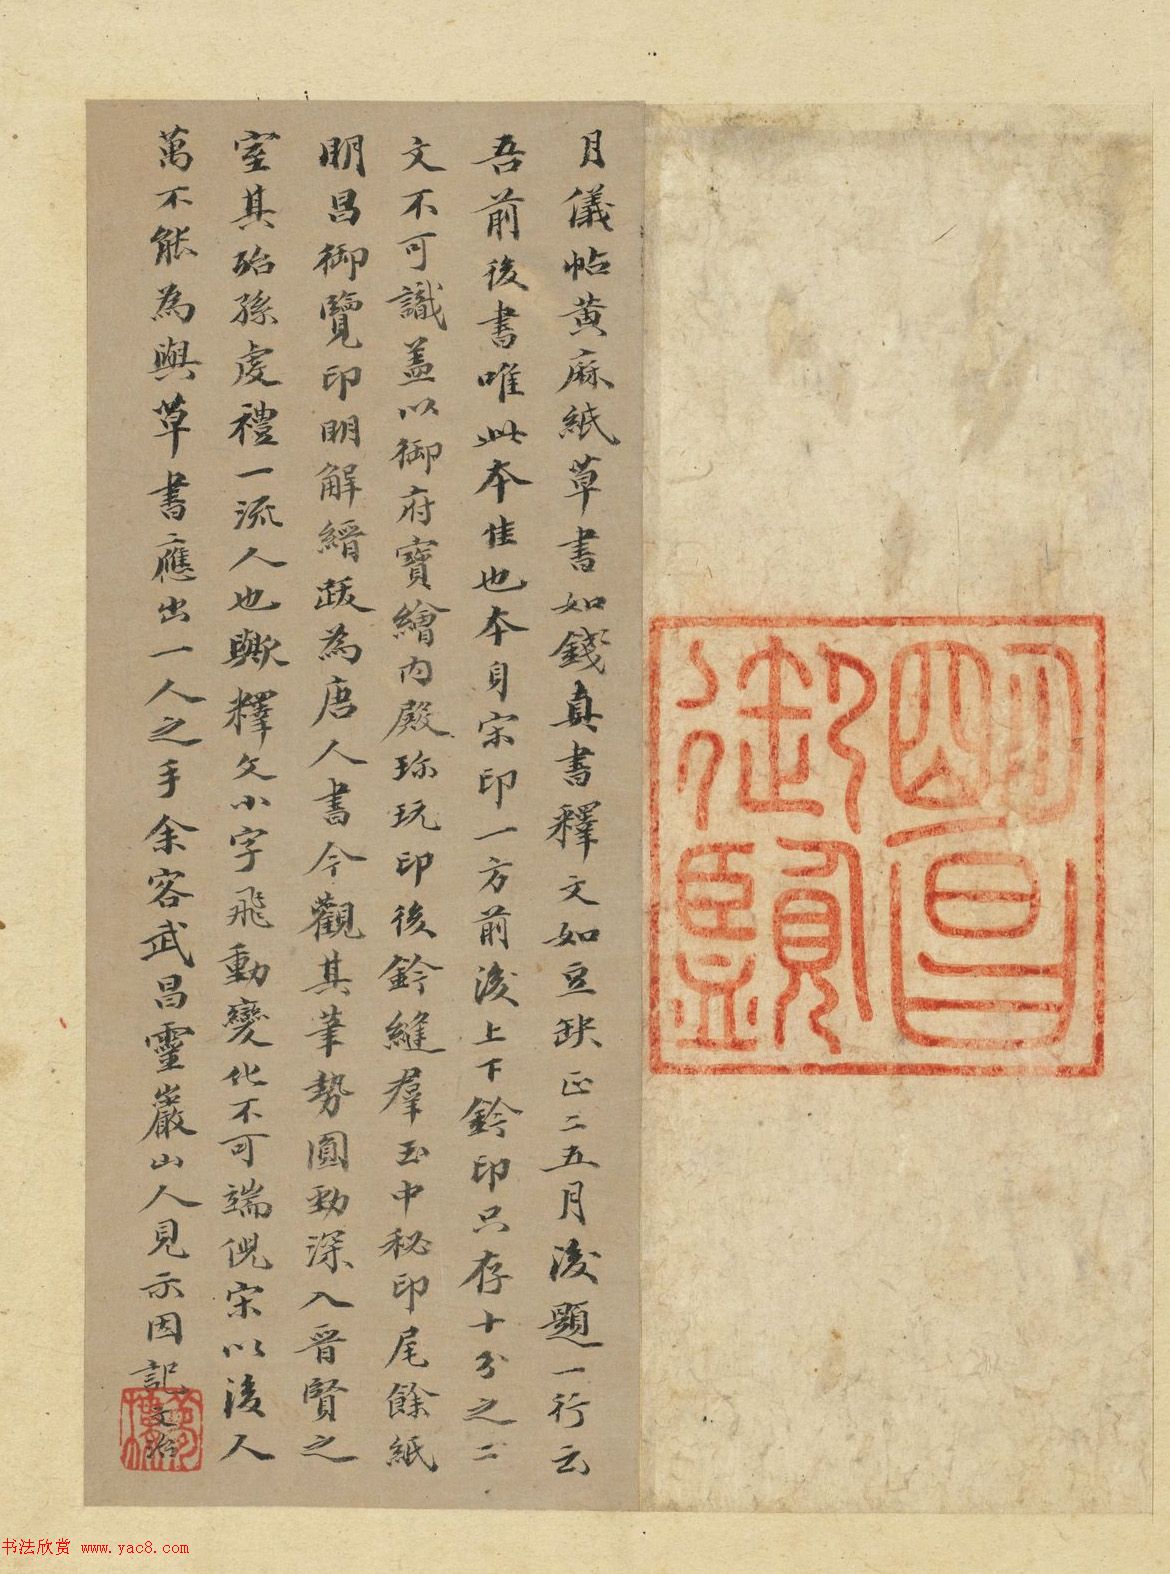 明昌
御覽
月儀帖黃麻紙草書如錢真書釋文如豆缺正二五月後題一行云
吾前後書唯此本佳也本身宋印一方前後上下鈐印只存十分之二
文不可識蓋以御府寶繪內殿珎玩印後鈐縫羣玉中秘印尾餘紙
明昌御覽印明解縉跋為唐人書今觀其筆勢圓勁深入晉賢之
室其殆孫虔禮一流人也歟釋文小字飛動變化不可端倪宋以後人
萬不能為與草書應出一人之手余客武昌靈巖山人見示因記
文治
书法欣赏 www.yac8.com